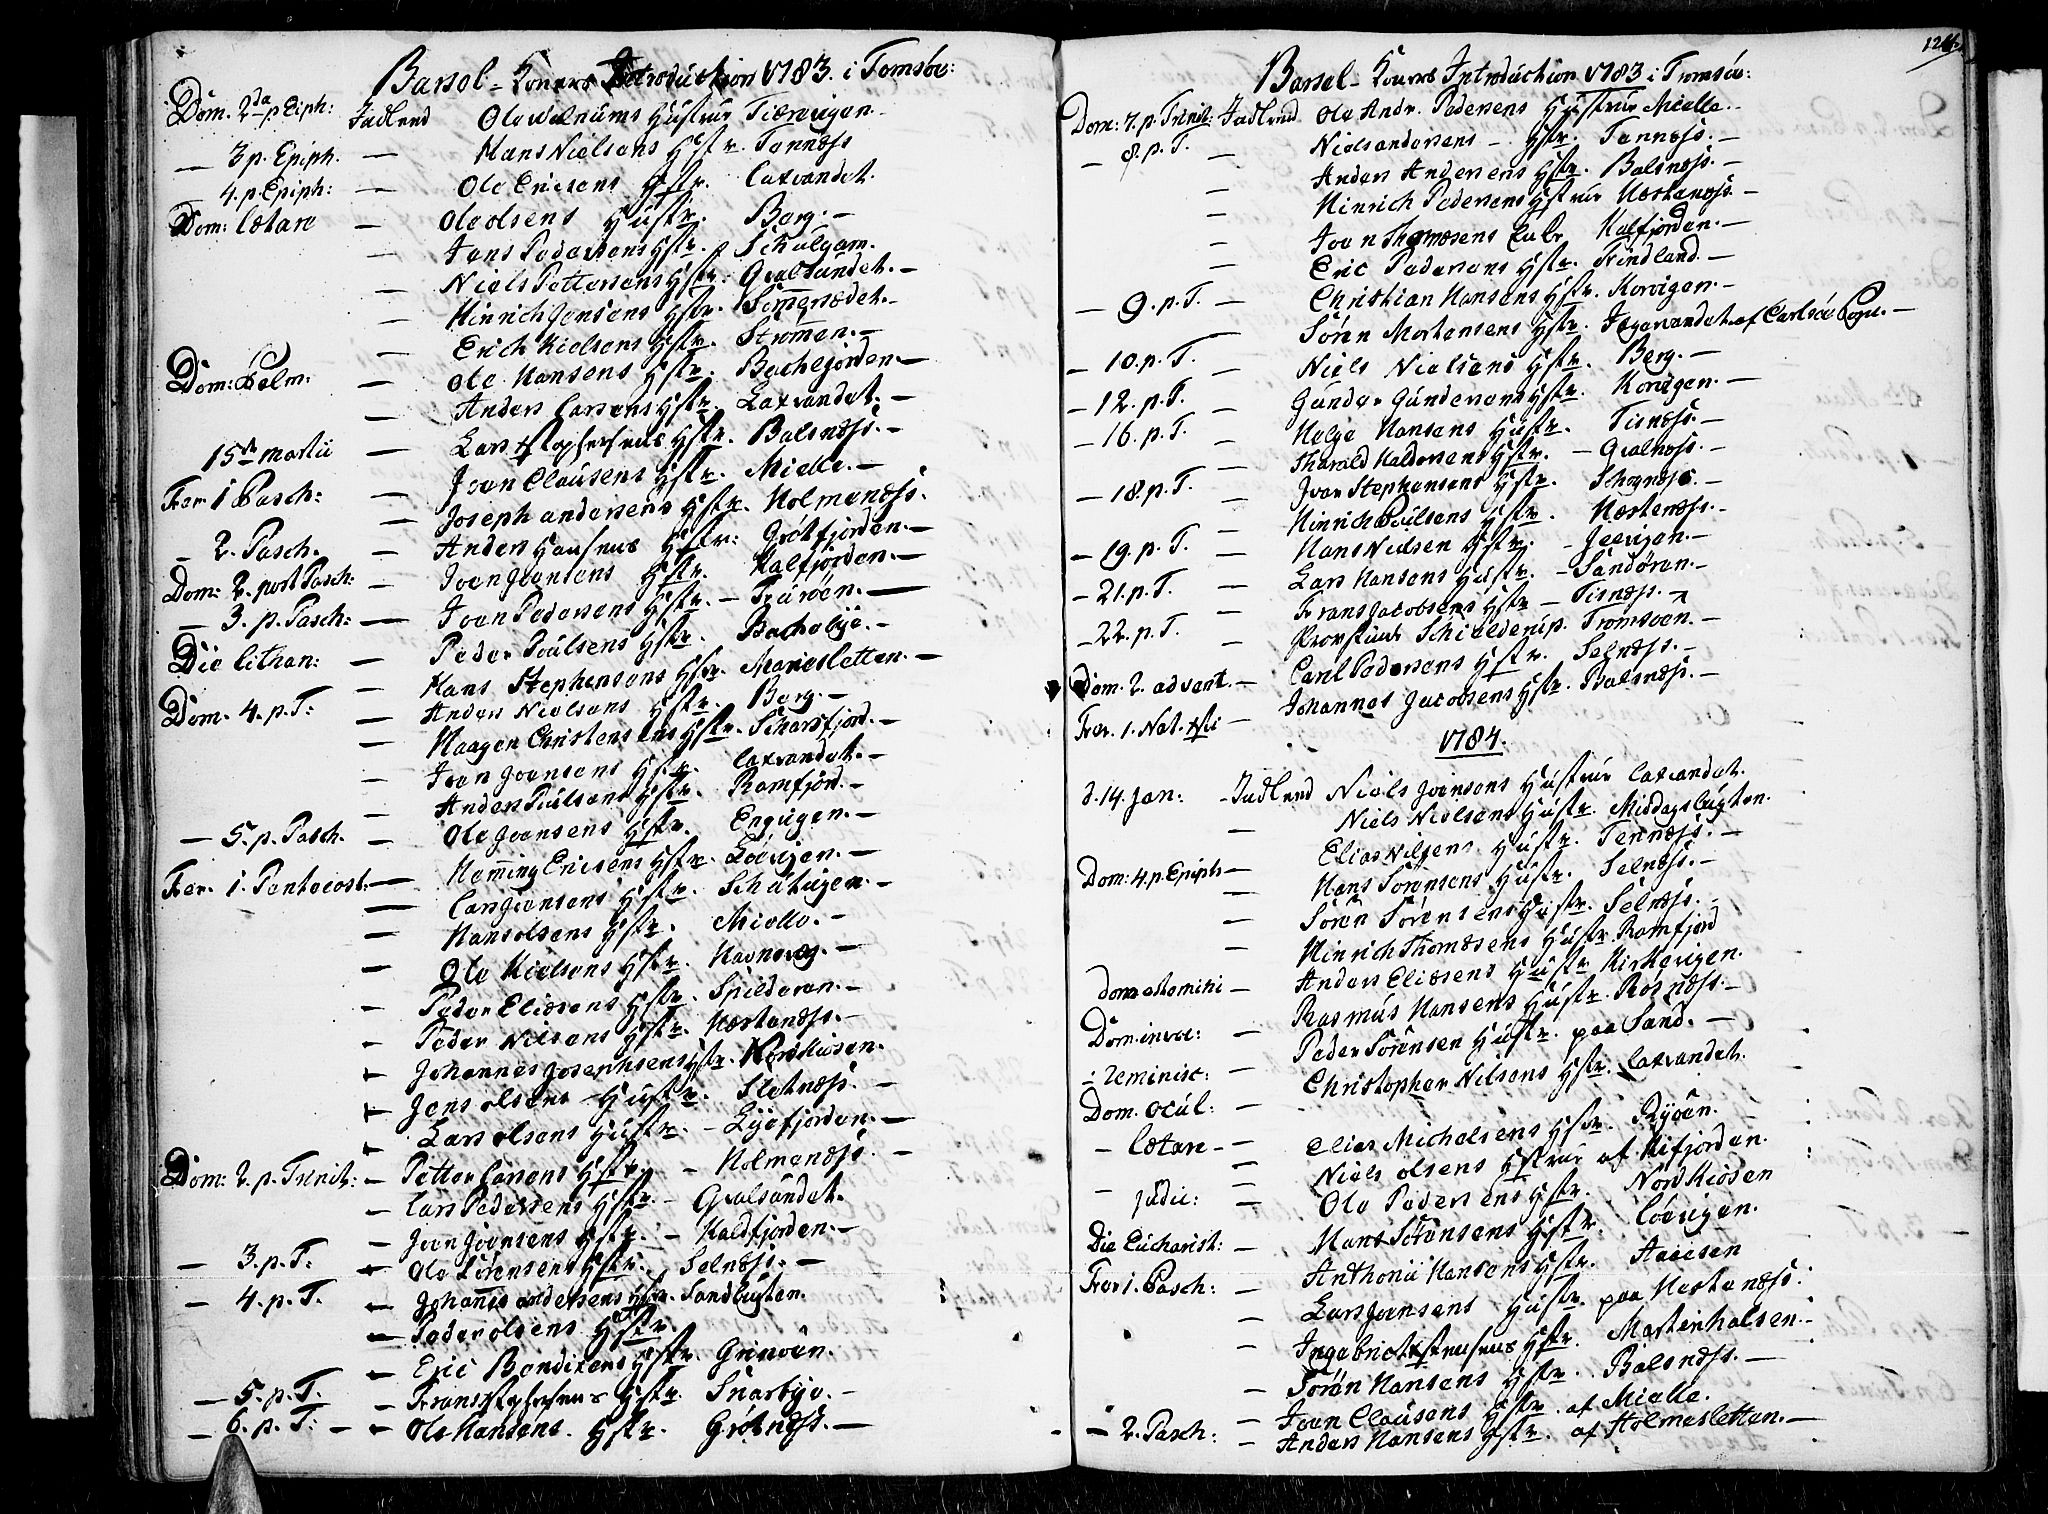 Barsel-Koners Introduction 1783. i Tomsöe:
Dom. 2da p Epiph: Indlend Ole Walnums Hustrur
— 3 p. Epiph. — Hans Nielsens Hstr. Tennæss
— 4. p Epiph: — Ole Ericsens Hstr. Laxvandet.
Dom: Lætare — Ole olsens Hustr. Berg. —
— Jens Pedersens Hstr. Schulgam.
— Niels Pettersens Hstr. Qvalsundet. —
— Hinrich Jensens Hstr. Sommersædet. —
— Erich Nielsens Hstr. Strömen. —
Dom: Palm: — Ole Hansens Hstr. Bachejorden —
— Anders Larsens Hstr. Laxvandet. —
15de Martii — Lars Xstophersens Hstr. Balsnæss. —
Fer 1 Pasch: — Joen Clausens Hstr. Mielle. —
— Joseph andersens Hstr. Holmenæss.
— 2. Pasch. — Anders Hansens Hstr: Grötfjorden. —
Dom: 2. post Pasch: — Joen Joensens Hstr. Kalfjorden. —
— 3. p. Pasch: — Joen Pedersens Hstr. —
Die Lithan: — Peder Poulsens Hstr. Bachebye. —
— Hans Stephensens Hstr. Mariesletten. —
Dom. 4. p. T: — Anders Nielsens Hstr. Berg. —
— Haagen Christensens Hstr. Scharsfjord. —
— Joen Joensens Hstr. Laxvandet. —
— Anders Poulsens Hstr. Ramfjord. —
— 5. p. Pasch. — Ole Joensens Hstr. Engvigen. —
Fer. 1. Pentecost. — Hemming Ericsens Hstr. Löevigen. —
— Lars Joensens Hstr. —
— Hans olsens Hstr. Mielle. —
— Ole Nielsens Hstr. Havnevæg. —
— Peder Eliæsens Hstr. Spilderen. —
— Peder Nilsens Hstr. Hertenæss. —
— Johannes Josephsens Hstr. Nordkiosen.
— Jens olsens Hustr. Sletnæss. —
— Lars olsens Hustr. — Lyefjorden. —
Dom: 2. p. Trinit: — Petter Larsens Hstr. — Holmenæss. —
— Lars Pedersens Hstr. — Qvalsundet.
— Joen Joensens Hstr. — Kaldfjorden. —
— 3. p. T: — Ole Sörensens Hstr. Selnæss. —
— 4. p. T. — Johannes andersens Hstr. Sandbugten.
— Peder olsens Hstr.
— Eric Bendixens Hstr. Grinöen.
— 5. p. T. — Frans Xstophersens Hstr. Snarbye. —
— 6. p. T: — Ole Hansens. Hstr. Grötnæss. —
124.
Barsel-Koners Introduction 1783 i Tromsöe:
Dom: 7. p. Trinit: Indlend Ole Andr. Pedersens Hustrur Mielle. —
— 8. p. T. — Niels andersens — Hstr. Tennæss. —
— Anders Andersens Hstr. Balsnæss. —
— Hinrich Pedersens Hstrur Hertenæss. —
— Joen Thomæsens Kalfjorden. —
— Eric Pedersens Hstr. Tindland. —
— 9. p. T. — Christian Hansens Hstr. Korvigen. —
— Sören Mortensens Hstr. Jegervandet af Carlsöe Cogn. —
— 10. p. T. — Niels Nielsens Hstr. Berg. —
— 12. p. T. — Gunder Gundersens Hstr. Korvigen. —
— 16. p. T. — Helge Hansens Hustr. Tisnæss. —
— Tharald Haldorsens Hstr. — Qvalnæss. —
— 18. p. T. — Joen Stephensens Hstr. Schognæss. —
— Hinrich Poulsens Hstr. Hertenæss. —
— 19. p. T. — Hans Nielsen Hstr. —
— 21. p. T. — Lars Hansens Hustr. — Sandören. —
— Frans Jacobsens Hstr — Tisnæss. —
— 22. p. T. — Provstinde Schielderup. Tromsöen. —
Dom. 2. advent. — Carl Pedersens Hstr. Selnæss. —
Fer. 1. Nat. Xsti — Johannes Jacobsens Hstr. Balsnæss. —
1784.
d. 14. Jan: — Indlend Niels Joensens Hustrur Laxvandet.
— Niels Nielsens Hustr. Middagsbugten.
Dom: 4. p. Epiph — Elias Nilsens Hustr. Tennæss. —
— Hans Sörensens Hustr. Selnæss. —
— Sören Sörensens Hustr. Selnæss. —
— Hinrich Thomæsens Hustr. Ramfjord
Dom estomihi — Anders Eliæsens Hustr Kirkevigen.
Dom. invoc: — Rasmus Hansens Hustr. Rösnæss. —
— reminisc: — Peder Sörensen Hustr. paa Sand. —
Dom. Ocul: — Christopher Nilsens Hstr. Laxvandet.
— Lætare — Elias Michelsens Hstr. Ryöen.
— Niels olsens Hstrur af Kifjorden.
— Judic: — Ole Pedersens Hstr. Nordkiosen
Die Eucharist: — Hans Sörensens Hstr. Löevigen.
Fer 1. Pasch: — Anthonii Hansens Hstr.
Lars Joensens Hustr. paa Hertenæss.
— Ingebrict Xstensens Hstr. Mortenhalsen. —
— Sören Hansens Hstr. Balsnæss. —
— Joen Clausens Hstr. af Mielle.
— 2. Pasch: — Anders Hansens Hstr. af Holmesletten. —